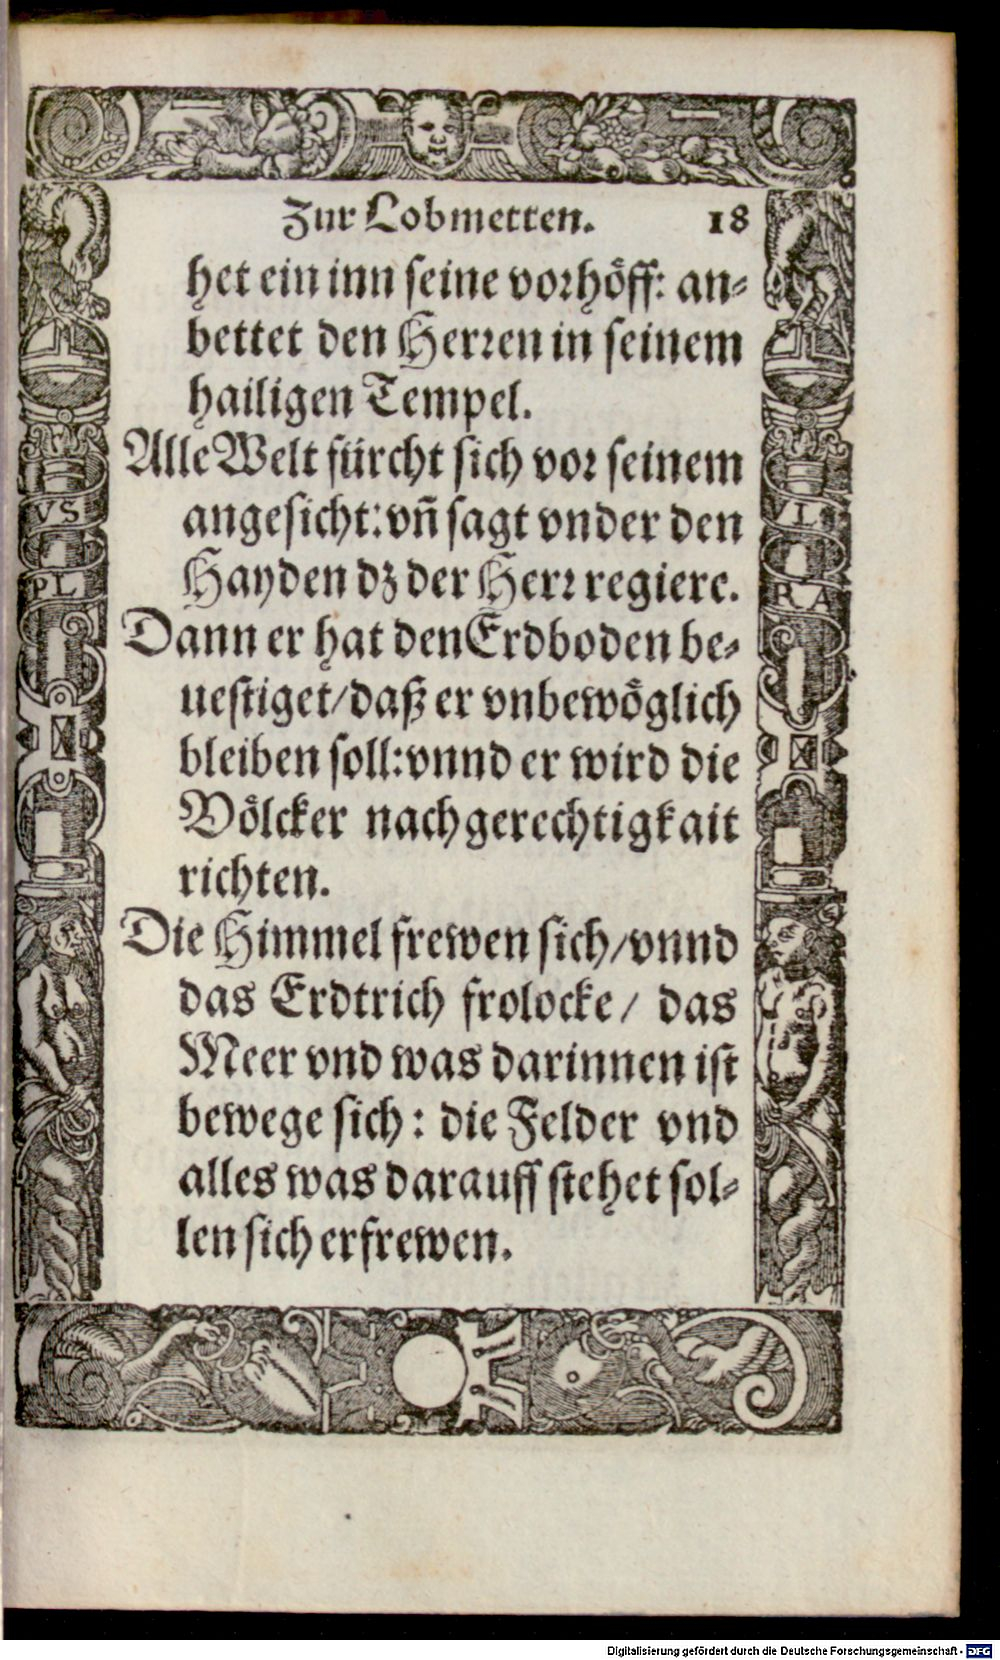 Zur Lobmetten. 18
het ein inn seine vorhöff: an-
bettet den Herren in seinem
hailigen Tempel.
Alle Welt fürcht sich vor seinem
angesicht: vñ sagt vnder den
Hayden dz der Herr regiere.
Dann er hat den Erdboden be-
uestiget/ daß er vnbewöglich
bleiben soll: vnnd er wird die
Völcker nach gerechtigkait
richten.
Die Himmel frewen sich/ vnnd
das Erdtrich frolocke/ das
Meer vnd was darinnen ist
bewege sich: die Felder vnd
alles was darauff stehet sol-
len sich erfrewen.
VS
PL
VL
RA
Digitalisierung gefördert durch die Deutsche Forschungsgemeinschaft - DFG